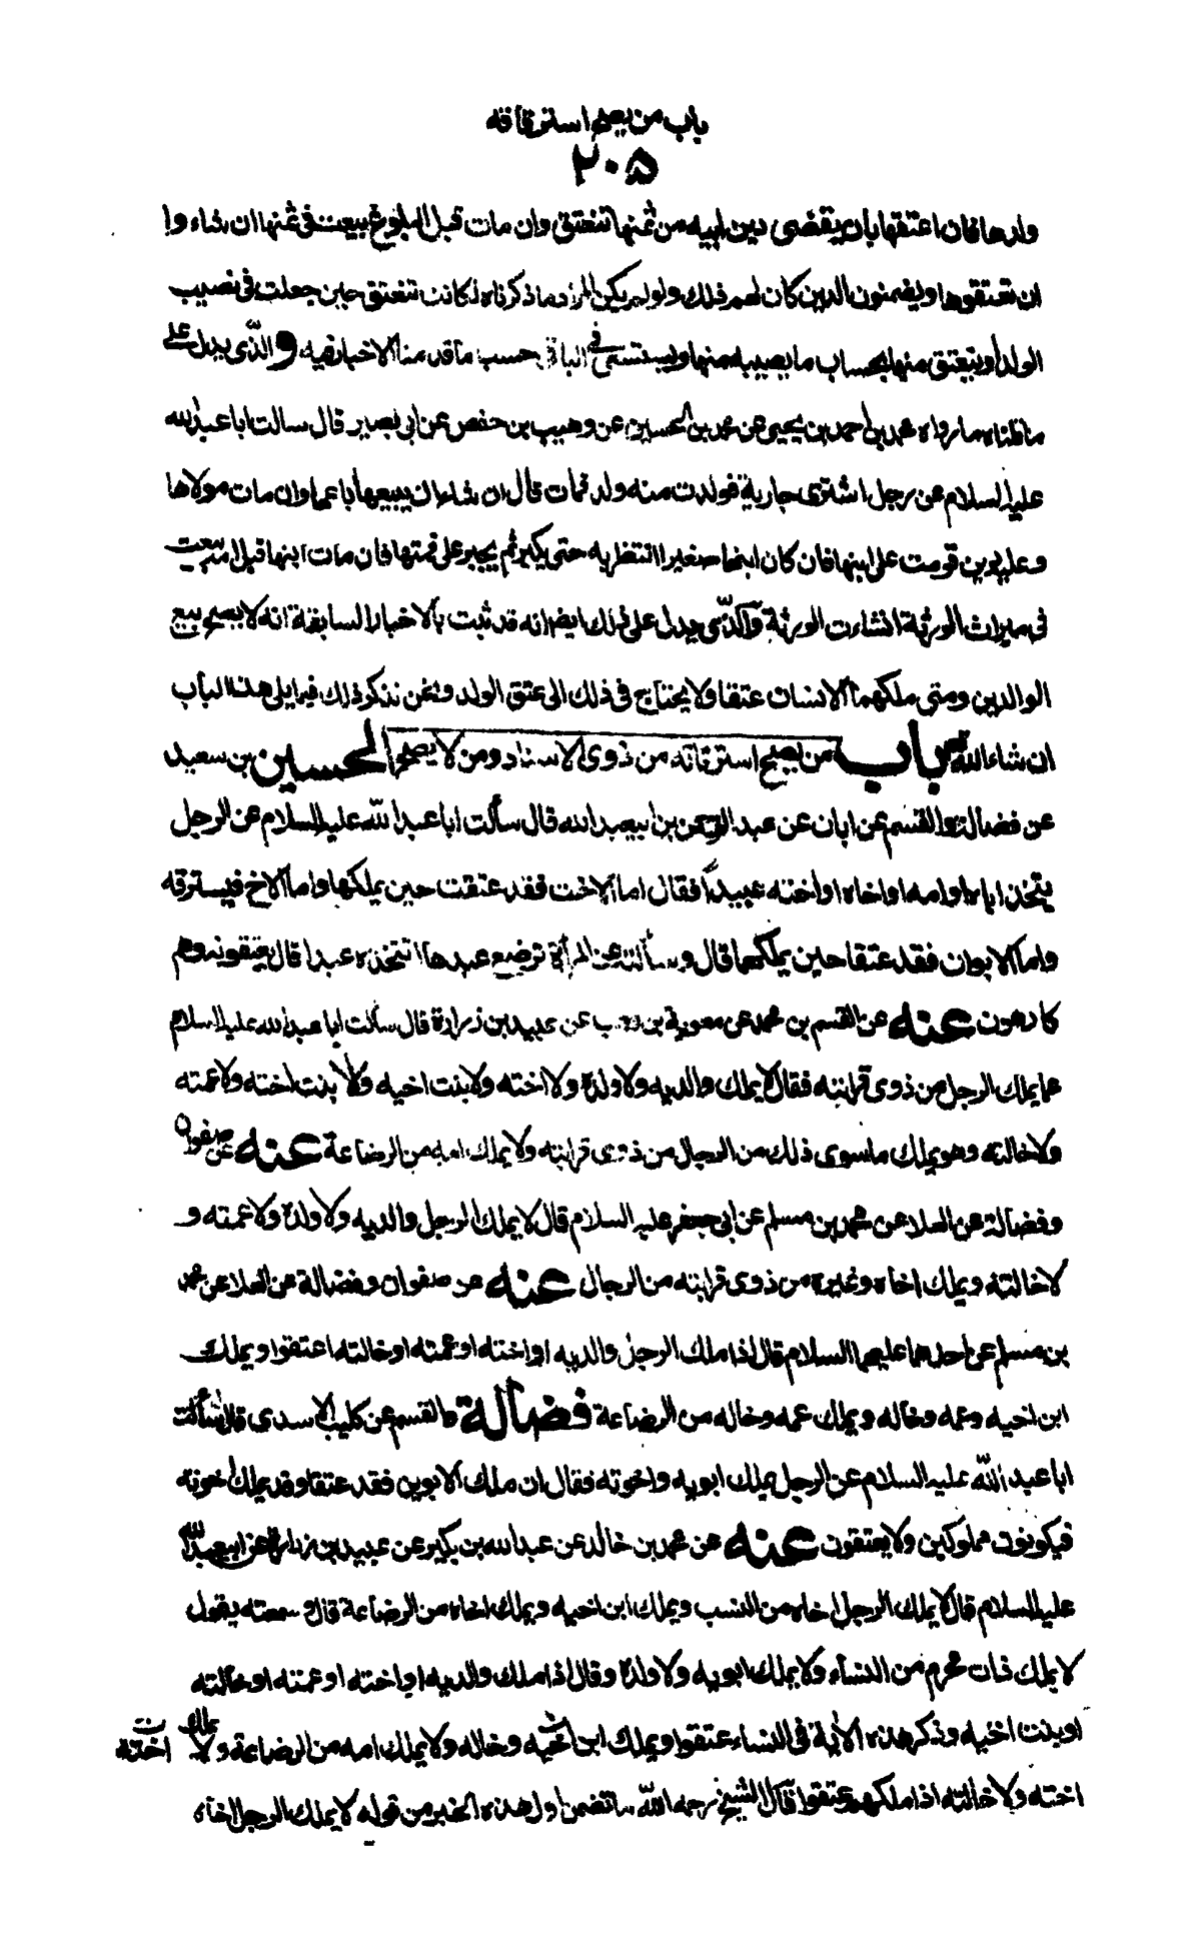 باب من يصح استرقاقه
٢٠٥
ولدها فان اعتقها بان يقضى دين ابيه من ثمنها تنعتق وان مات قبل البلوغ بيعت فى ثمنها ان شاء وا
ان تعتقوها ويضمنون الدين كان لهم ذلك ولو لم يكن المراد ما ذكرناه لكانت تنعتق حين جعلت فى نصيب
الولد او ينعتق منها بحساب ما يصيبه منها ويستسعى فى الباقى حسب ما قدمنا الاخبار فيه والذى يدل على
ما قلناه ما رواه محمد بن احمد بن يحيى عن محمد بن الحسين عن وهيب بن حفص عن ابى بصير قال سالت ابا عبد الله
عليه السلام عن رجل اشترى جارية فولدت منه ولدا فمات قال ان شاء ان يبيعها باعها وان مات مولاها
وعليه دين قومت على ابنها فان كان ابنها صغيرا انتظر به حتى يكبر ثم يجبر على قيمتها فان مات ابنها قبل امه بيعت
فى ميراث الورثة ان شاءت الورثة والذى يدل على ذلك ايضا انه قد ثبت بالاخبار السابقة انه لا يصح بيع
الوالدين ومتى ملكهما الانسان عتقا ولا يحتاج فى ذلك الى عتق الولد ونحن نذكر ذلك فيما يلى هذا الباب
ان شاء الله باب من يصح استرقاقه من ذوى الانساب ومن لا يصح الحسين بن سعيد
عن فضالة والقسم عن ابان عن عبد الرحمن بن ابيعبد الله قال سألت ابا عبد الله عليه السلام عن الرجل
يتخذ اباه او امه او اخاه او اخته عبيدا فقال اما الاخت فقد عتقت حين يملكها واما الاخ فيسترقه
واما الابوان فقد عتقا حين يملكهما قال وسألته عن المرأة ترضع عبدها اتتخذه عبدا قال يعتقونه وهم
كارهون عنه عن القسم بن محمد عن معوية بن وهب عن عبيد بن زرارة قال سألت ابا عبد الله عليه السلام
عما يملك الرجل من ذوى قرابته فقال لا يملك والديه ولا ولده ولا اخته ولا بنت اخيه ولا بنت اخته ولا عمته
ولا خالته وهو يملك ما سوى ذلك من الرجال من ذوى قرابته ولا يملك امه من الرضاعة عنه عن صفوان
وفضالة عن العلا عن محمد بن مسلم عن ابى جعفر عليه السلام قال لا يملك الرجل والديه ولا ولده ولا عمته و
لا خالته ويملك اخاه وغيره من ذوى قرابته من الرجال عنه عن صفوان وفضالة عن العلا عن محمد
بن مسلم عن احدهما عليهما السلام قال اذا ملك الرجل والديه او اخته او عمته او خالته اعتقوا ويملك
ابن اخيه وعمه وخاله ويملك عمه وخاله من الرضاعة فضالة والقسم عن كليب الاسدى قال سألت
ابا عبد الله عليه السلام عن الرجل يملك ابويه واخوته فقال ان ملك الابوين فقد عتقا وقد يملك اخوته
فيكونون مملوكين ولا يعتقون عنه عن محمد بن خالد عن عبد الله بن بكير عن عبيد بن زرارة عن ابيعبد الله
عليه السلام قال لا يملك الرجل اخاه من النسب ويملك ابن اخيه ويملك اخاه من الرضاعة قال وسمعته يقول
لا يملك ذات محرم من النساء ولا يملك ابويه ولا ولده وقال اذا ملك والديه او اخته او عمته او خالته
او بنت اخيه وذكر هذه الاية فى النساء عتقوا ويملك ابن اخيه وخاله ولا يملك امه من الرضاعة ولا يملك
اخته ولا خالته اذا ملكهم عتقوا قال الشيخ رحمه الله ما تضمن اول هذه الخبر من قوله لا يملك الرجل اخاه